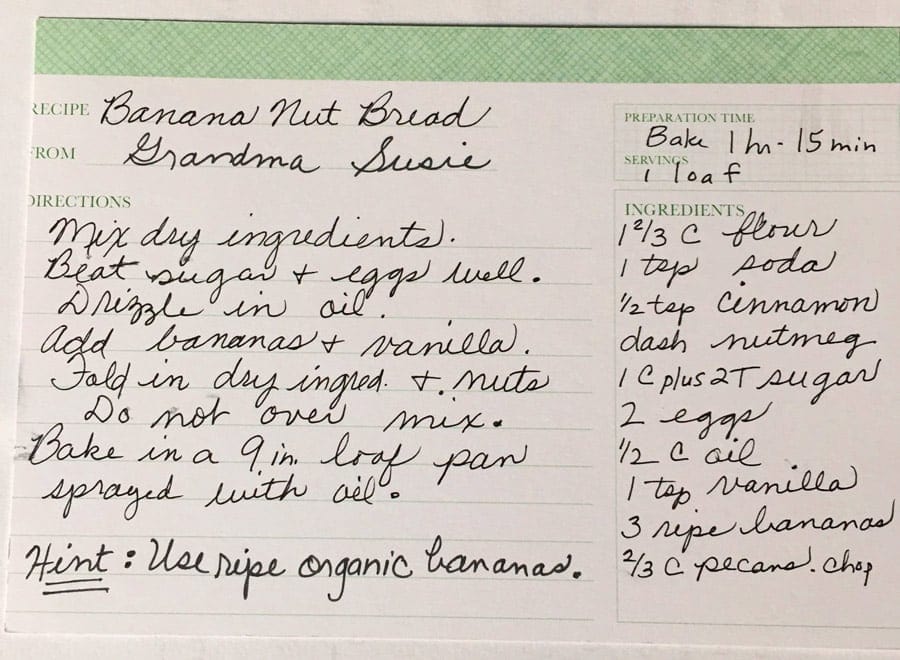 RECIPE Banana Nut Bread
FROM Grandma Susie
PREPARATION TIME
Bake 1 hr - 15 min
SERVINGS
1 loaf
DIRECTIONS
Mix dry ingredients.
Beat sugar + eggs well.
Drizzle in oil.
Add bananas + vanilla.
Fold in dry ingred. + nuts
Do not over mix.
Bake in a 9 in. loaf pan
sprayed with oil.
Hint: Use ripe organic bananas.
INGREDIENTS
1 2/3 C flour
1 tsp soda
1/2 tsp cinnamon
dash nutmeg
1 C plus 2T sugar
2 eggs
1/2 C oil
1 tsp vanilla
3 ripe bananas
2/3 C pecans. chop